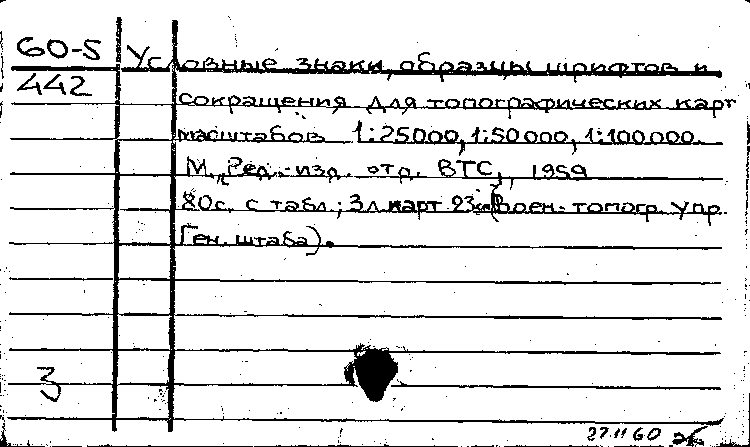 60-5
442
Условные знаки, образцы шрифтов и
сокращения для топографических карт
масштабов 1:25000, 1:50000, 1:100000.
М., Ред.-изд. отд. ВТС, 1959
80с. с табл.; 3л карт 23см (Воен.-топогр. упр.
Ген. штаба).
3
27.11 60